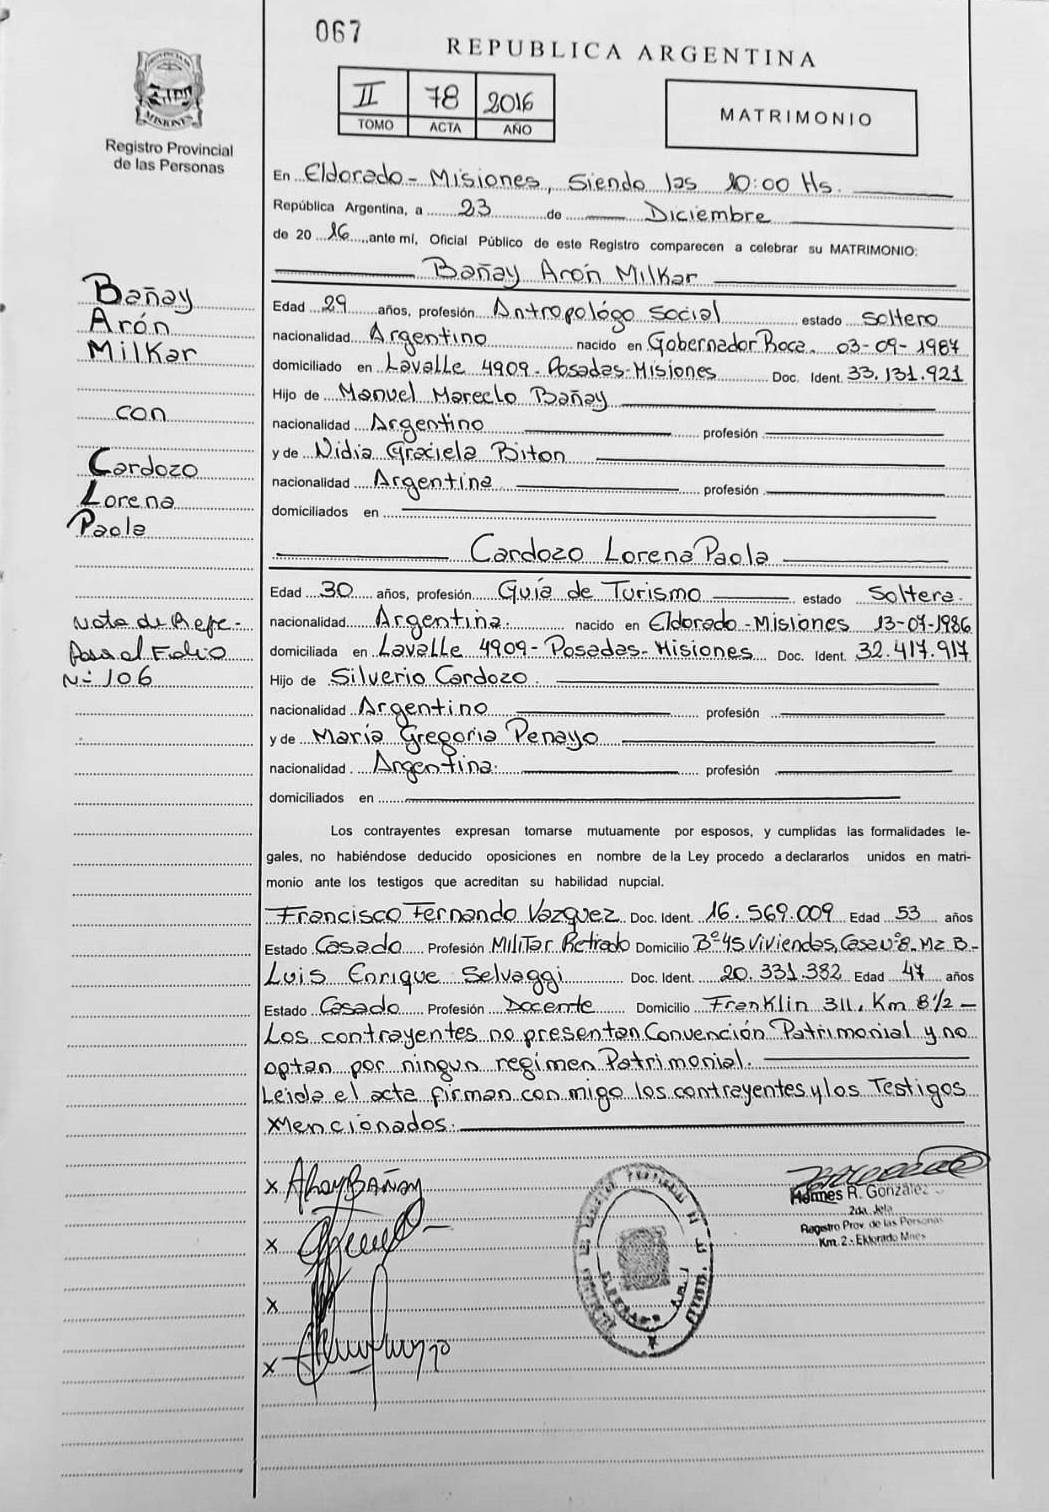 067
REPUBLICA ARGENTINA
II 78 2016
TOMO ACTA AÑO
MATRIMONIO
Registro Provincial
de las Personas
En Eldorado - Misiones, Siendo las 10:00 Hs.
República Argentina, a 23 de Diciembre
de 20 16, ante mí, Oficial Público de este Registro comparecen a celebrar su MATRIMONIO:
Bañay Arón Milkar
Edad 29 años, profesión Antropológo Social estado Soltero
nacionalidad Argentino nacido en Gobernador Roca. 03-09-1987
domiciliado en Lavalle 4909- Posadas-Misiones Doc. Ident. 33.131.921
Hijo de Manuel Mareclo Bañay
nacionalidad Argentino profesión
y de Nidia Graciela Biton
nacionalidad Argentina profesión
domiciliados en
Cardozo Lorena Paola
Edad 30 años, profesión Guía de Turismo estado Soltera.
nacionalidad Argentina. nacido en Eldorado-Misiones 13-07-1986
domiciliada en Lavalle 4909- Posadas- Misiones Doc. Ident. 32.417.917
Hijo de Silverio Cardozo.
nacionalidad Argentino profesión
y de María Gregoria Penayo
nacionalidad Argentina. profesión
domiciliados en
Bañay
Arón
Milkar
con
Cardozo
Lorena
Paola
Nota de Refe-
Pasa al Folio
Nº 106
Los contrayentes expresan tomarse mutuamente por esposos, y cumplidas las formalidades le-
gales, no habiéndose deducido oposiciones en nombre de la Ley procedo a declararlos unidos en matri-
monio ante los testigos que acreditan su habilidad nupcial.
Francisco Fernando Vazquez Doc. Ident. 16.569.009 Edad 53 años
Estado Casado Profesión Militar Retirado Domicilio Bº 45 Viviendas, Casa Nº 8. Mz B-
Luis Enrique Selvaggi Doc. Ident. 20.331.382 Edad 47 años
Estado Casado Profesión Docente Domicilio Franklin 311, Km 8 1/2 -
Los contrayentes no presentan Convención Patrimonial y no
optan por ningun regimen Patrimonial.
Leida el acta firman con migo los contrayentes y los Testigos
Mencionados.
X BAÑAY
X
X
X
Hermes R. González
2da. Jefa
Registro Prov. de las Personas
Km. 2 - Eldorado Mnes